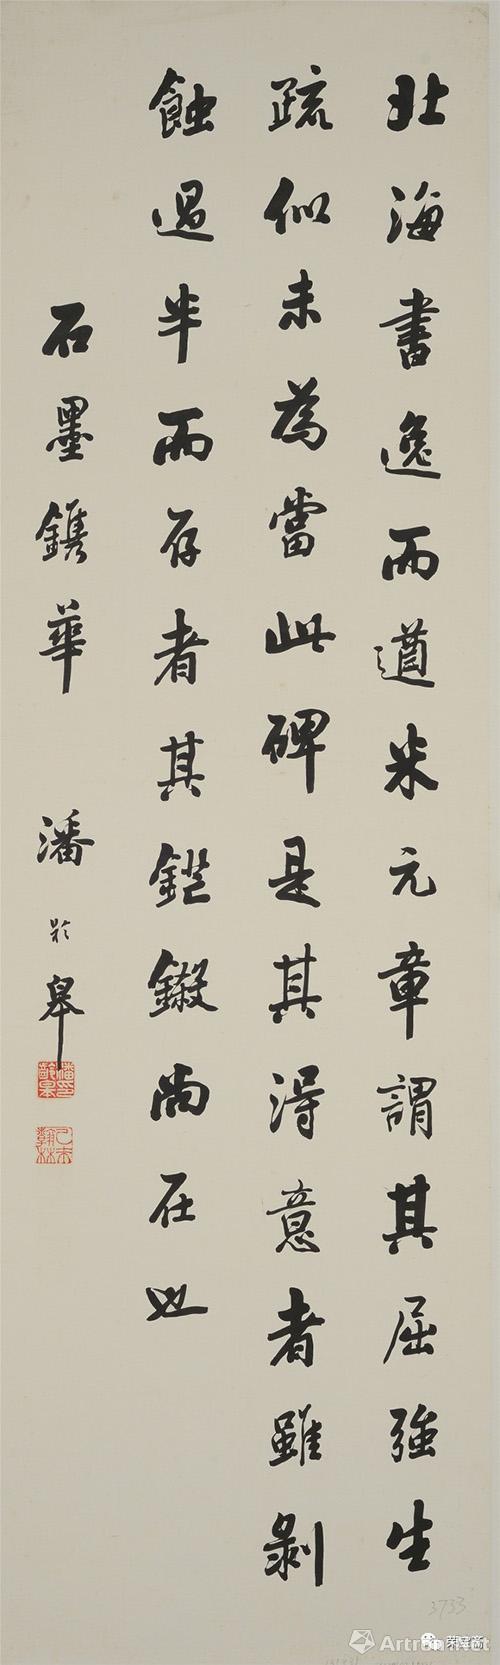 北海書逸而遒米元章謂其屈強生
疏似未為當此碑是其得意者雖剝
蝕過半而存者其鋩鎩尚在也
石墨鐫華
潘齡皋
潘齡皋印
乙未翰林
3733
荣宝斋
Artron.Net